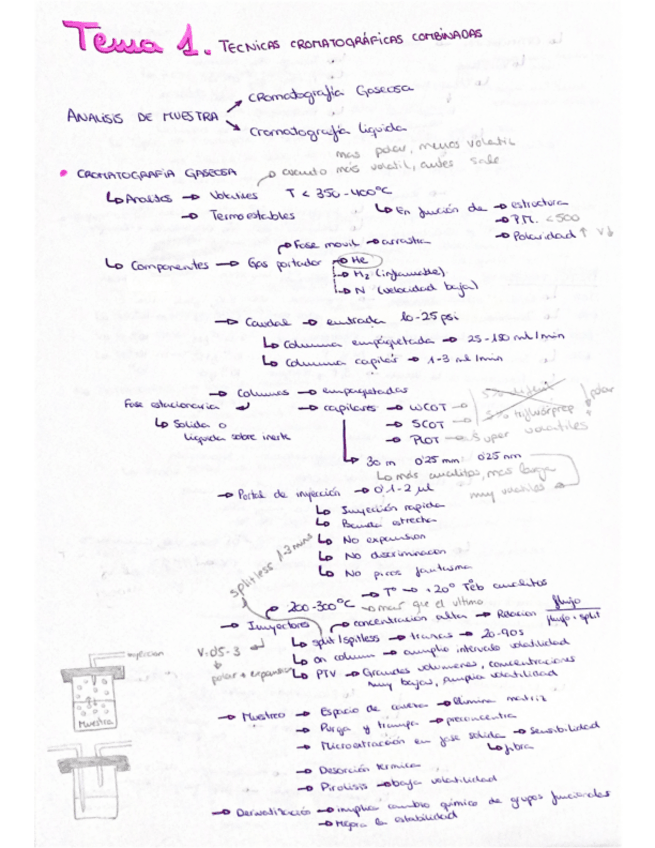 Tema 1. TECNICAS CROMATOGRÁFICAS COMBINADAS
ANALISIS DE MUESTRA → cromatografía Gaseosa
→ cromatografía líquida
mas polar, menos volatil
• CROMATOGRAFIA GASEOSA cuanto más volatil, antes sale
↳ Analitos → Volatiles T < 350-400°C
→ Termoestables
↳ En función de → estructura
→ P.M. < 500
→ Polaridad ↑ V↓
↳ Componentes → Gas portador → Fase movil → arrastra
→ He
→ H2 (inflamable)
→ N (velocidad baja)
→ Caudal → entrada 10-25 psi
↳ Columna empaquetada → 25-150 ml/min
↳ Columna capilar → 1-3 ml/min
→ Columnas → empaquetadas
Fase estacionaria → capilares → WCOT
↳ Solida o → SCOT
liquida sobre inerte → PLOT → Super volatiles
polar
↳ 30 m 0'25 mm 0'25 nm
↳ más analitos, mas larga
muy volatiles
→ Portal de inyección → 0'1-2 µl
↳ Inyección rapida
↳ Banda estrecha
↳ No expansion
↳ No discriminacion
↳ No picos fantasma
splitless 1-3 mins
200-300°C → Tª → +20° Teb analitos
→ mas que el ultimo
→ Inyectores → concentracion alta → Relación flujo / flujo + split
↳ split/splitless → trancas → 20-90s
↳ on column → amplio intervalo volatilidad
↳ PTV → Grandes volumenes, concentraciones
muy bajas, amplia volatilidad
V = 0.5-3
polar + expansion
→ Muestreo → Espacio de cabeza → Elimina matriz
→ Purga y trampa → preconcentra
→ Microextracción en fase sólida → sensibilidad
↳ fibra
→ Desorción termica
→ Pirolisis → baja volatilidad
→ Derivatización → implica cambio químico de grupos funcionales
→ Mejora la estabilidad
inyeccion
Muestra